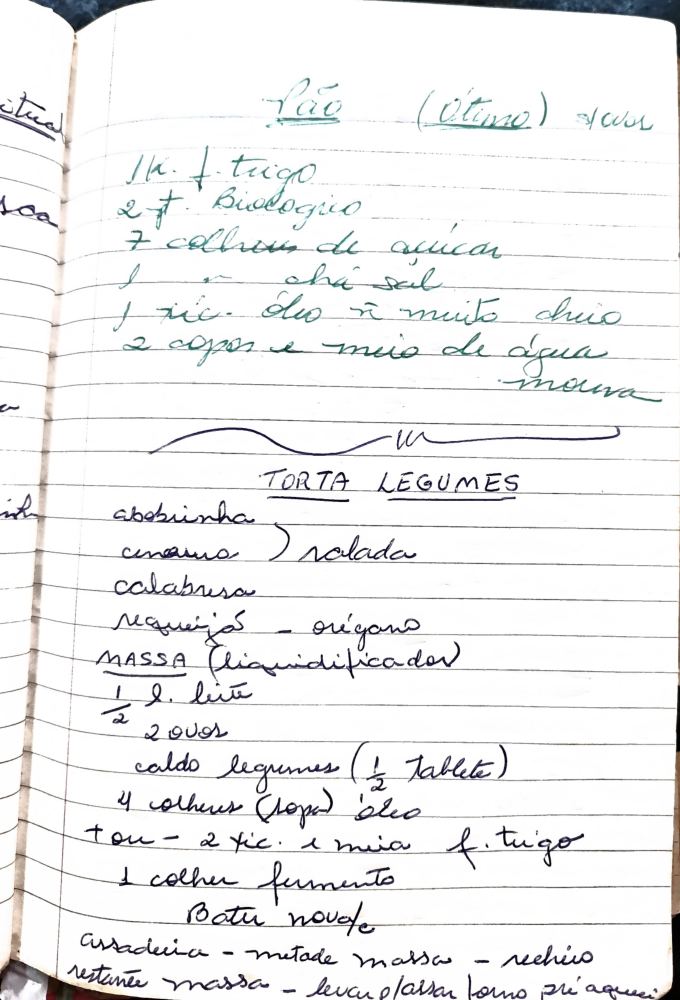 itual
Pão (Ótimo)
1k. f. trigo
2 f. Biologico
7 colheres de açúcar
1 " chá sal
1 xic. óleo ñ muito cheio
2 copos e meio de água
morna
TORTA LEGUMES
abobrinha
cenoura ) ralada
calabresa
requeijão - orégano
MASSA (liquidificador)
1/2 l. leite
2 ovos
caldo legumes (1/2 tablete)
4 colheres (sopa) óleo
+ ou - 2 xic. e meia f. trigo
1 colher fermento
Bater nova/e
assadeira - metade massa - recheio
restante massa - levar p/assar forno pré aqueci